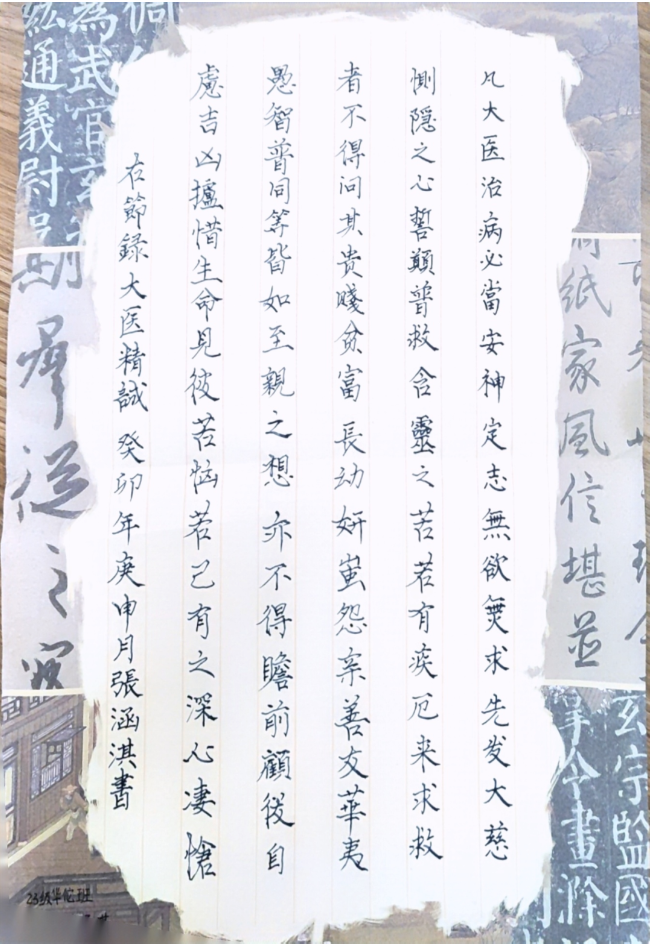 凡大医治病必當安神定志無欲無求先发大慈
惻隠之心誓願普救含靈之苦若有疾厄来求救
者不得问其贵賤贫富長幼妍蚩怨亲善友華夷
愚智普同等皆如至親之想亦不得瞻前顧後自
慮吉凶護惜生命見彼苦恼若己有之深心凄愴
右節録大医精誠癸卯年庚申月張涵淇書
23级华佗班
為武官玄
通義尉
羣從之
紙家風信堪並
玄宗監國
令畫滁